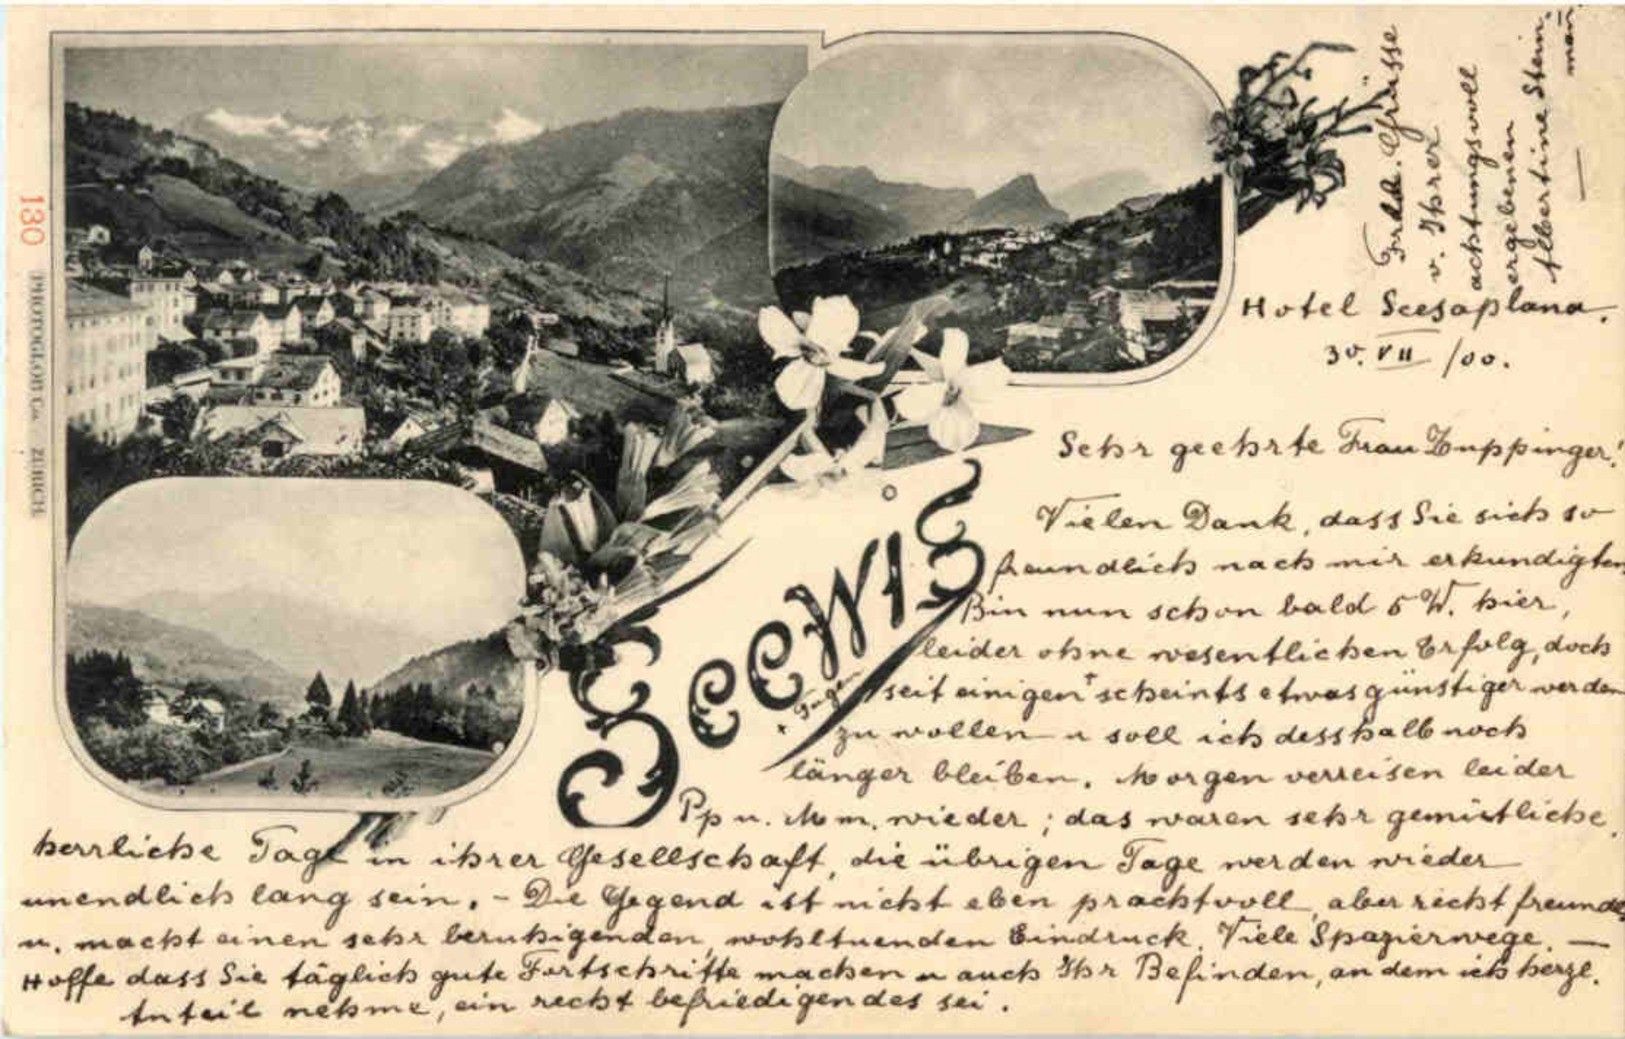 130
PHOTOGLOB Co. ZÜRICH.
Seewis
Hotel Scesaplana.
30. VII /00.
Sehr geehrte Frau Zuppinger!
Vielen Dank, dass Sie sich so
freundlich nach mir erkundigten.
Bin nun schon bald 5 W. hier,
leider ohne wesentlichen Erfolg, doch
seit einigen + scheints etwas günstiger werden
+ Tagen
zu wollen u soll ich desshalb noch
länger bleiben. Morgen verreisen leider
Pp u. Mm. wieder; das waren sehr gemütliche,
herrliche Tage in ihrer Gesellschaft, die übrigen Tage werden wieder
unendlich lang sein. - Die Gegend ist nicht eben prachtvoll, aber recht freundl.
u. macht einen sehr beruhigenden, wohltuenden Eindruck. Viele Spazierwege. —
Hoffe dass Sie täglich gute Fortschritte machen u auch Ihr Befinden, an dem ich herzl.
Anteil nehme, ein recht befriedigendes sei.
Grüsse
v. Ihrer
achtungsvoll
ergebenen
Albertine Stein-
mann